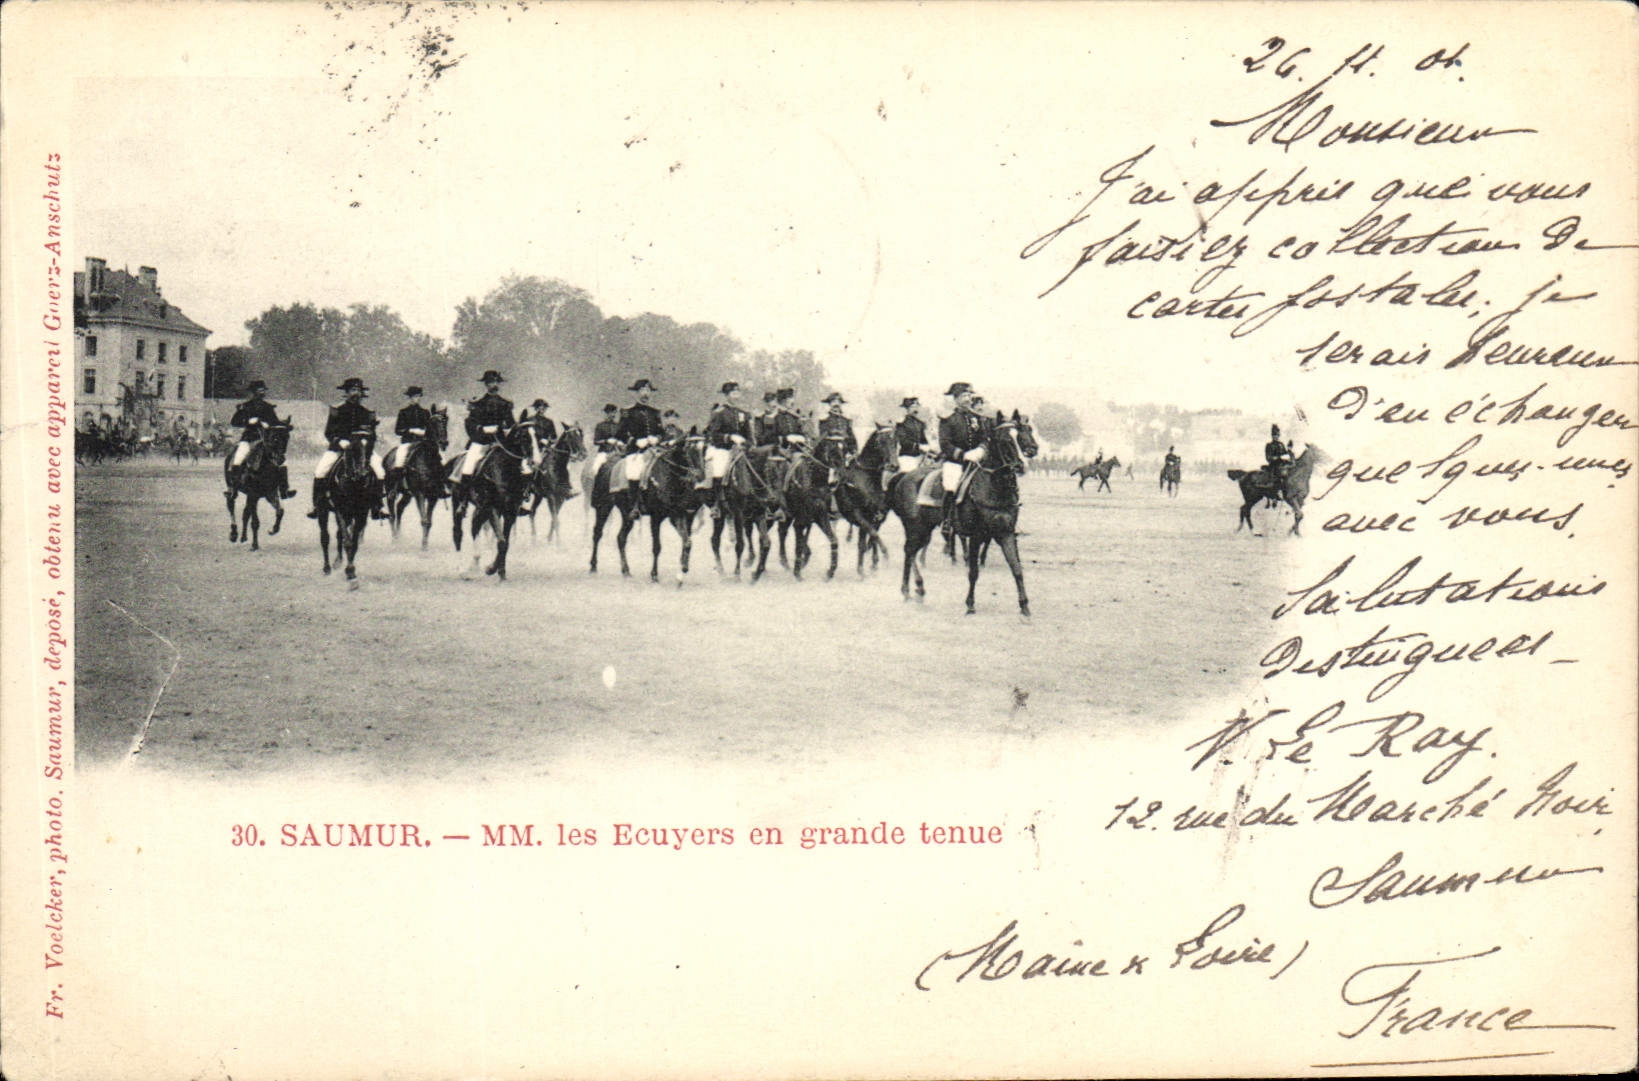 26. 11. 01.
Monsieur
J'ai appris que vous
faisiez collection de
cartes postales, je
serais heureux
d'en échanger
quelques-unes
avec vous.
Salutations
Distinguées -
V. Le Ray.
12. rue du Marché Noir,
Saumur
(Maine & Loire)
France
30. SAUMUR. — MM. les Ecuyers en grande tenue
Fr. Voelcker, photo. Saumur, déposé, obtenu avec appareil Goerz-Anschutz